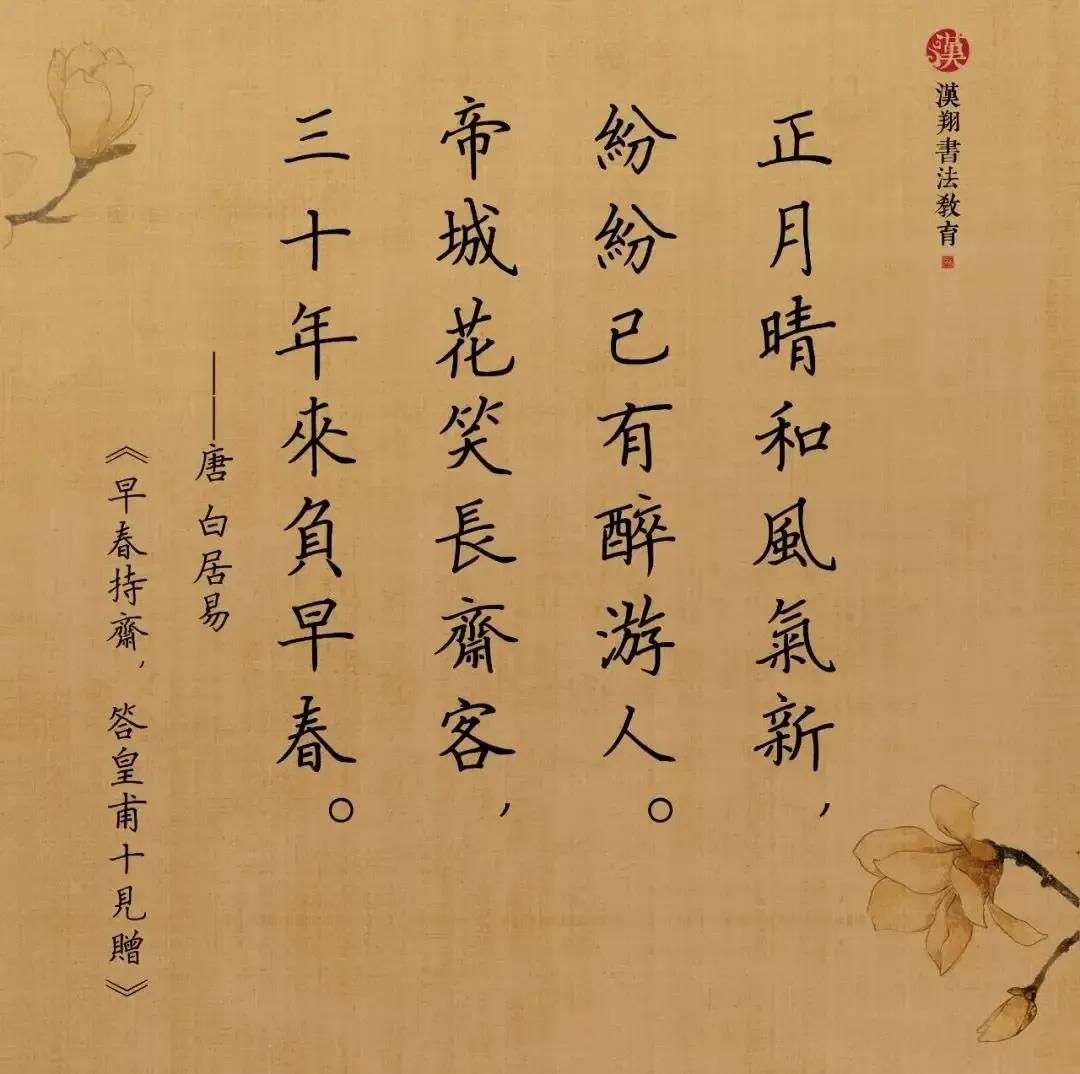 漢
漢翔書法教育
正月晴和風氣新，
紛紛已有醉游人。
帝城花笑長齋客，
三十年來負早春。
——唐 白居易
《早春持齋，答皇甫十見贈》